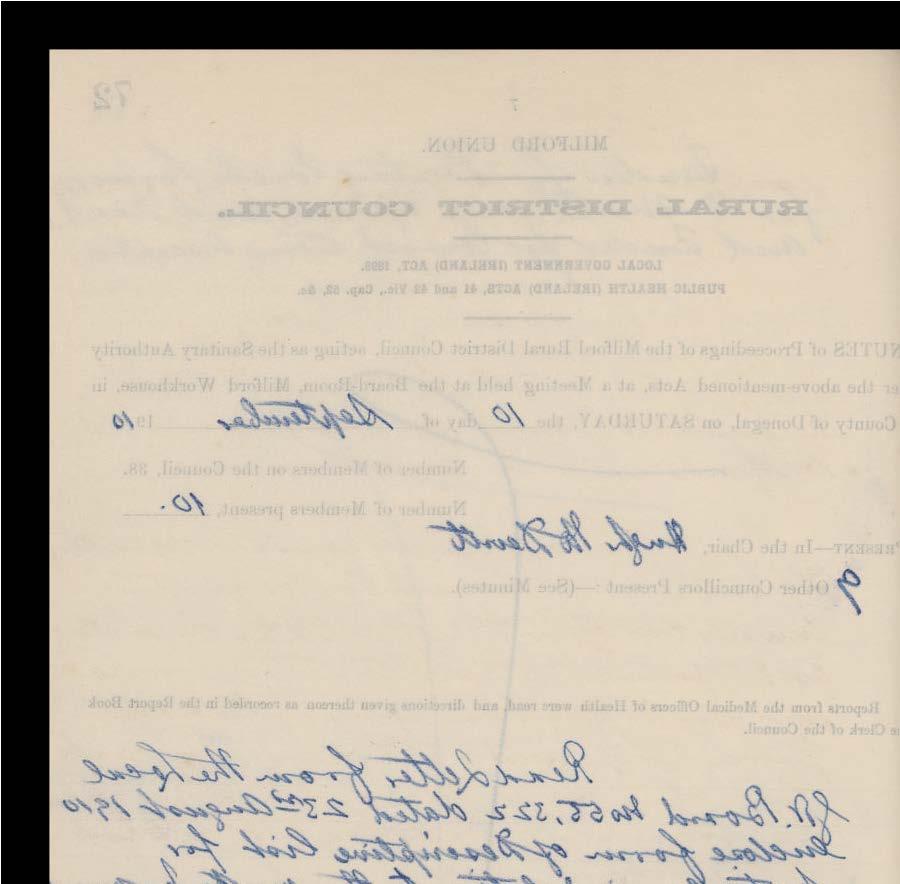 72
7
MILFORD UNION.
RURAL DISTRICT COUNCIL.
LOCAL GOVERNMENT (IRELAND) ACT, 1898.
PUBLIC HEALTH (IRELAND) ACTS, 41 and 42 Vic., Cap. 52, &c.
NUTES of Proceedings of the Milford Rural District Council, acting as the Sanitary Authority
er the above-mentioned Acts, at a Meeting held at the Board-Room, Milford Workhouse, in
County of Donegal, on SATURDAY, the 10 day of September 1910
Number of Members on the Council, 38.
Number of Members present, 10.
PRESENT—In the Chair, Hugh McDevitt
9 Other Councillors Present :—(See Minutes).
Reports from the Medical Officers of Health were read, and directions given thereon as recorded in the Report Book
e Clerk of the Council.
Read Letter from the Local
Board No 55,322 dated 23rd August 1910
Enclose form of Descriptive list for